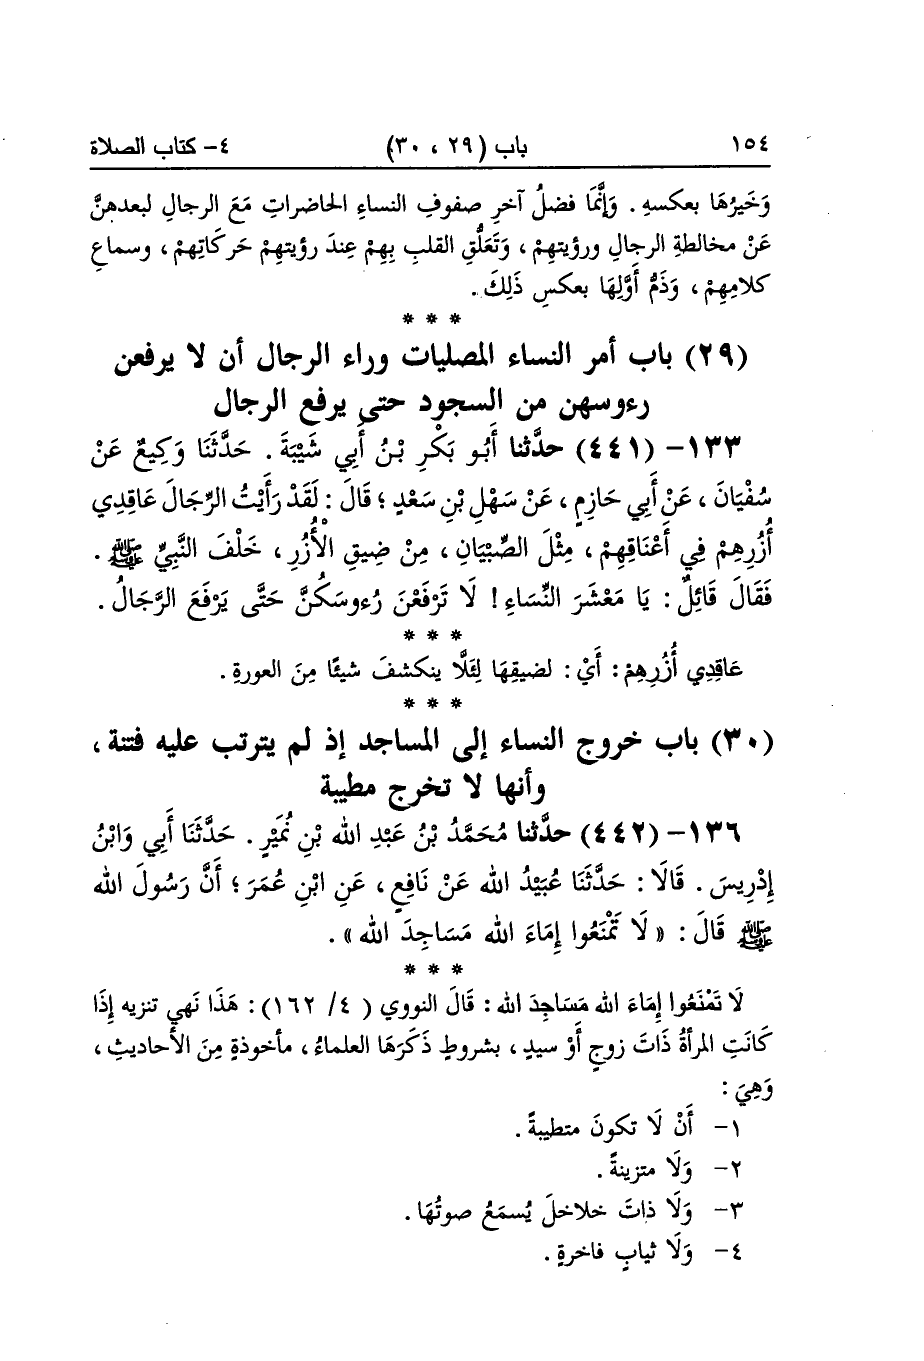 ١٥٤ باب (٢٩ ، ٣٠) ٤- كتاب الصلاة
وَخَيرُهَا بعكسهِ . وَإِنَّمَا فضلُ آخرِ صفوفِ النساءِ الحاضراتِ مَعَ الرجالِ لبعدهنَّ
عَنْ مخالطةِ الرجالِ ورؤيتهِمْ ، وَتَعَلُّقِ القلبِ بِهِمْ عِندَ رؤيتهِمْ حَركَاتِهِمْ ، وسماعِ
كلامِهِمْ ، وَذَمُّ أَوَّلِهَا بعكسِ ذَلِكَ .
* * *
(٢٩) باب أمر النساء المصليات وراء الرجال أن لا يرفعن
رءوسهن من السجود حتى يرفع الرجال
١٣٣- (٤٤١) حدَّثنا أَبُو بَكْرِ بْنُ أَبِي شَيْبَةَ . حَدَّثَنَا وَكِيعٌ عَنْ
سُفْيَانَ ، عَنْ أَبِي حَازِمٍ ، عَنْ سَهْلِ بْنِ سَعْدٍ ؛ قَالَ : لَقَدْ رَأَيْتُ الرِّجَالَ عَاقِدِي
أُزُرِهِمْ فِي أَعْنَاقِهِمْ ، مِثْلَ الصِّبْيَانِ ، مِنْ ضِيقِ الْأُزُرِ ، خَلْفَ النَّبِيِّ ﷺ .
فَقَالَ قَائِلٌ : يَا مَعْشَرَ النِّسَاءِ ! لَا تَرْفَعْنَ رُءوسَكُنَّ حَتَّى يَرْفَعَ الرِّجَالُ .
* * *
عَاقِدِي أُزُرِهِمْ : أَيْ : لضيقِهَا لِئَلَّا ينكشفَ شيئًا مِنَ العورةِ .
* * *
(٣٠) باب خروج النساء إلى المساجد إذ لم يترتب عليه فتنة ،
وأنها لا تخرج مطيبة
١٣٦- (٤٤٢) حدَّثنا مُحَمَّدُ بْنُ عَبْدِ الله بْنِ نُمَيْرٍ . حَدَّثَنَا أَبِي وَابْنُ
إِدْرِيسَ . قَالَا : حَدَّثَنَا عُبَيْدُ الله عَنْ نَافِعٍ ، عَنِ ابْنِ عُمَرَ ؛ أَنَّ رَسُولَ الله
ﷺ قَالَ : « لَا تَمْنَعُوا إِمَاءَ الله مَسَاجِدَ الله » .
* * *
لَا تَمْنَعُوا إِمَاءَ الله مَسَاجِدَ الله : قَالَ النووي ( ٤/ ١٦٢) : هَذَا نَهي تنزيه إِذَا
كَانَتِ المرأةُ ذَاتَ زوجٍ أَوْ سيدٍ ، بشروطٍ ذَكَرَهَا العلماءُ ، مأخوذةٍ مِنَ الأحاديثِ ،
وَهِيَ :
١- أَنْ لَا تكونَ متطيبةً .
٢- وَلَا متزينةً .
٣- وَلَا ذاتَ خلاخلَ يُسمَعُ صوتُهَا .
٤- وَلَا ثيابٍ فاخرةٍ .